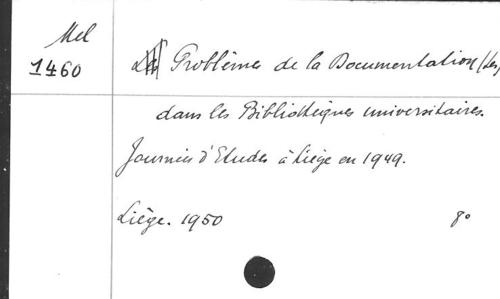 Mel
1460
Problèmes de la Documentation (Les)
dans les Bibliothèques universitaires.
Journées d'Etudes à Liège en 1949.
Liège. 1950 8°